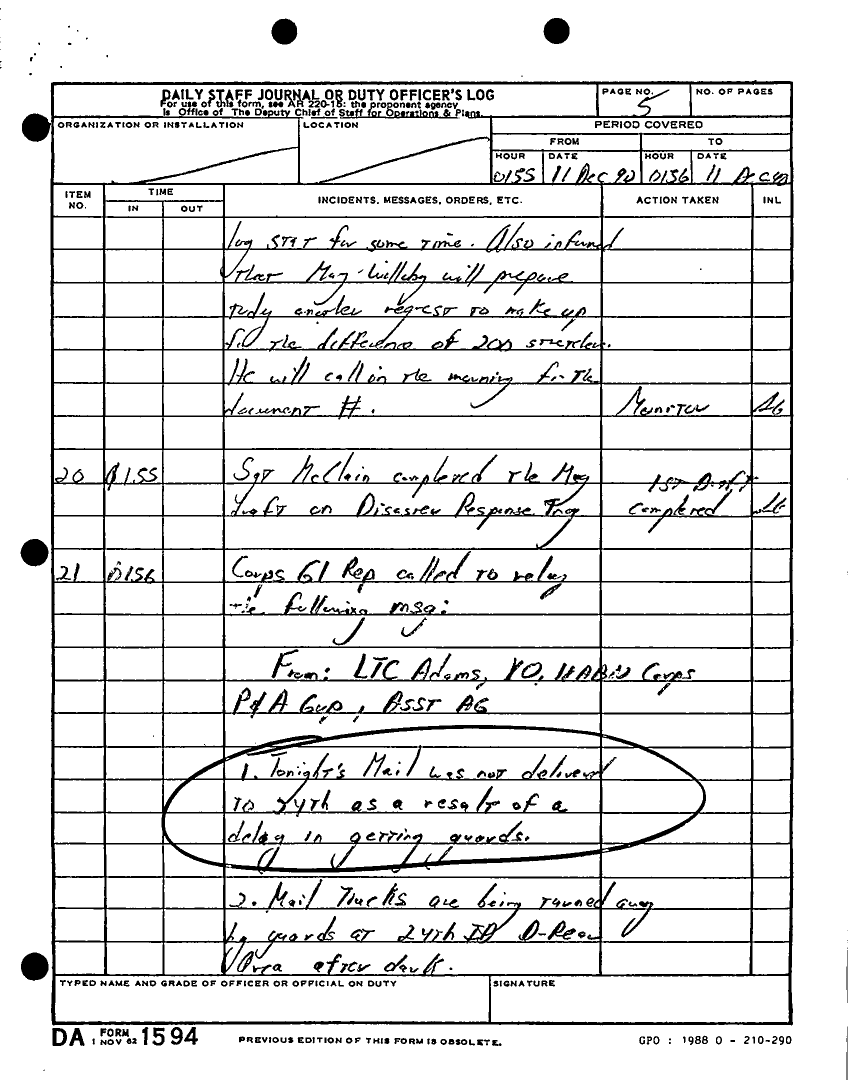 DAILY STAFF JOURNAL OR DUTY OFFICER'S LOG
For use of this form, see AR 220-15; the proponent agency
is Office of The Deputy Chief of Staff for Operations & Plans.
PAGE NO.
5
NO. OF PAGES
ORGANIZATION OR INSTALLATION
LOCATION
PERIOD COVERED
FROM
TO
HOUR
DATE
HOUR
DATE
0155
11 Dec 90
0156
11 Dec 90
ITEM NO.
TIME
IN
OUT
INCIDENTS, MESSAGES, ORDERS, ETC.
ACTION TAKEN
INL
log STAT for some time. Also informed
that Maj will prepare
another request to make up
the difference of 200
He will call in the morning for the
document #.
Monitor
20
0155
Sgt McClain completed the
draft on Disaster Response Trng
1st Draft
completed
21
0156
Corps G1 Rep called to relay
the following msg:
From: LTC Adams, XO, Corps
P&A Grp, Asst AG
1. Tonight's Mail was not delivered
to 24th as a result of a
delay in getting guards.
2. Mail Trucks are being turned away
by guards at 24th ID D-Rear
Area after dark.
TYPED NAME AND GRADE OF OFFICER OR OFFICIAL ON DUTY
SIGNATURE
DA FORM 1594
1 NOV 62
PREVIOUS EDITION OF THIS FORM IS OBSOLETE.
GPO : 1988 O - 210-290